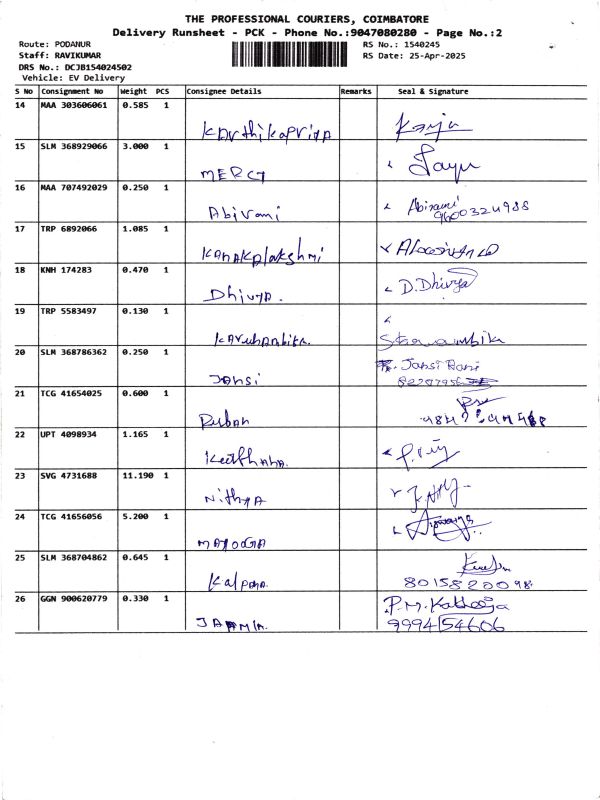 THE PROFESSIONAL COURIERS, COIMBATORE
Delivery Runsheet - PCK - Phone No.:9047080280 - Page No.:2
Route: PODANUR RS No.: 1540245
Staff: RAVIKUMAR RS Date: 25-Apr-2025
DRS No.: DCJB154024502
Vehicle: EV Delivery
S No Consignment No Weight PCS Consignee Details Remarks Seal & Signature
14 MAA 303606061 0.585 1
Karthikapriya
15 SLM 368929066 3.000 1
MERCY
16 MAA 707492029 0.250 1
Abirami Abirami
9600324988
17 TRP 6892066 1.085 1
KANAKAlakshmi
18 KNH 174283 0.470 1
Dhivya. D. Dhivya
19 TRP 5583497 0.130 1
20 SLM 368786362 0.250 1
Jansi Jansi Rani
21 TCG 41654025 0.600 1
Ruban
22 UPT 4098934 1.165 1
Keerthana.
23 SVG 4731688 11.190 1
Nithya
24 TCG 41656056 5.200 1
25 SLM 368704862 0.645 1
Kalpana. 8015820098
26 GGN 900620779 0.330 1
P.M. Kathoja
9994154606